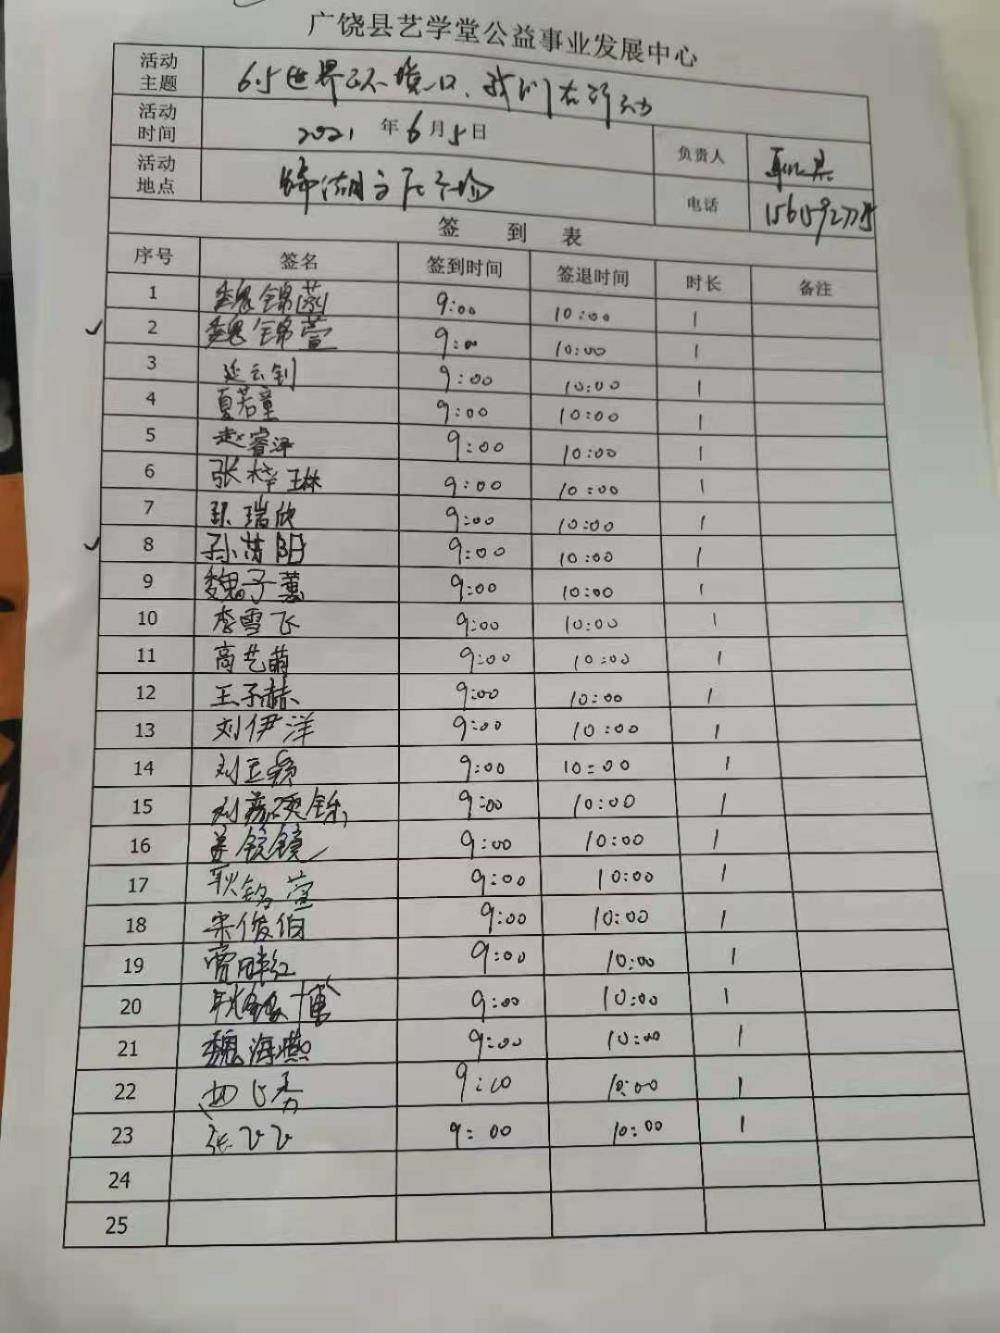 广饶县艺学堂公益事业发展中心
活动主题 6.5世界环境日、我们在行动
活动时间 2021年6月5日 负责人
活动地点 电话
签到表
序号 签名 签到时间 签退时间 时长 备注
1 魏锦 9:00 10:00 1
2 魏锦萱 9:00 10:00 1
3 延云钊 9:00 10:00 1
4 夏若童 9:00 10:00 1
5 赵睿泽 9:00 10:00 1
6 张梓琳 9:00 10:00 1
7 瑞欣 9:00 10:00 1
8 孙 阳 9:00 10:00 1
9 魏子蕙 9:00 10:00 1
10 李雪飞 9:00 10:00 1
11 高艺萌 9:00 10:00 1
12 王子赫 9:00 10:00 1
13 刘伊洋 9:00 10:00 1
14 刘 9:00 10:00 1
15 刘 9:00 10:00 1
16 镜 9:00 10:00 1
17 耿铭萱 9:00 10:00 1
18 宋俊伯 9:00 10:00 1
19 红 9:00 10:00 1
20 博 9:00 10:00 1
21 魏海燕 9:00 10:00 1
22 9:00 10:00 1
23 张飞飞 9:00 10:00 1
24
25